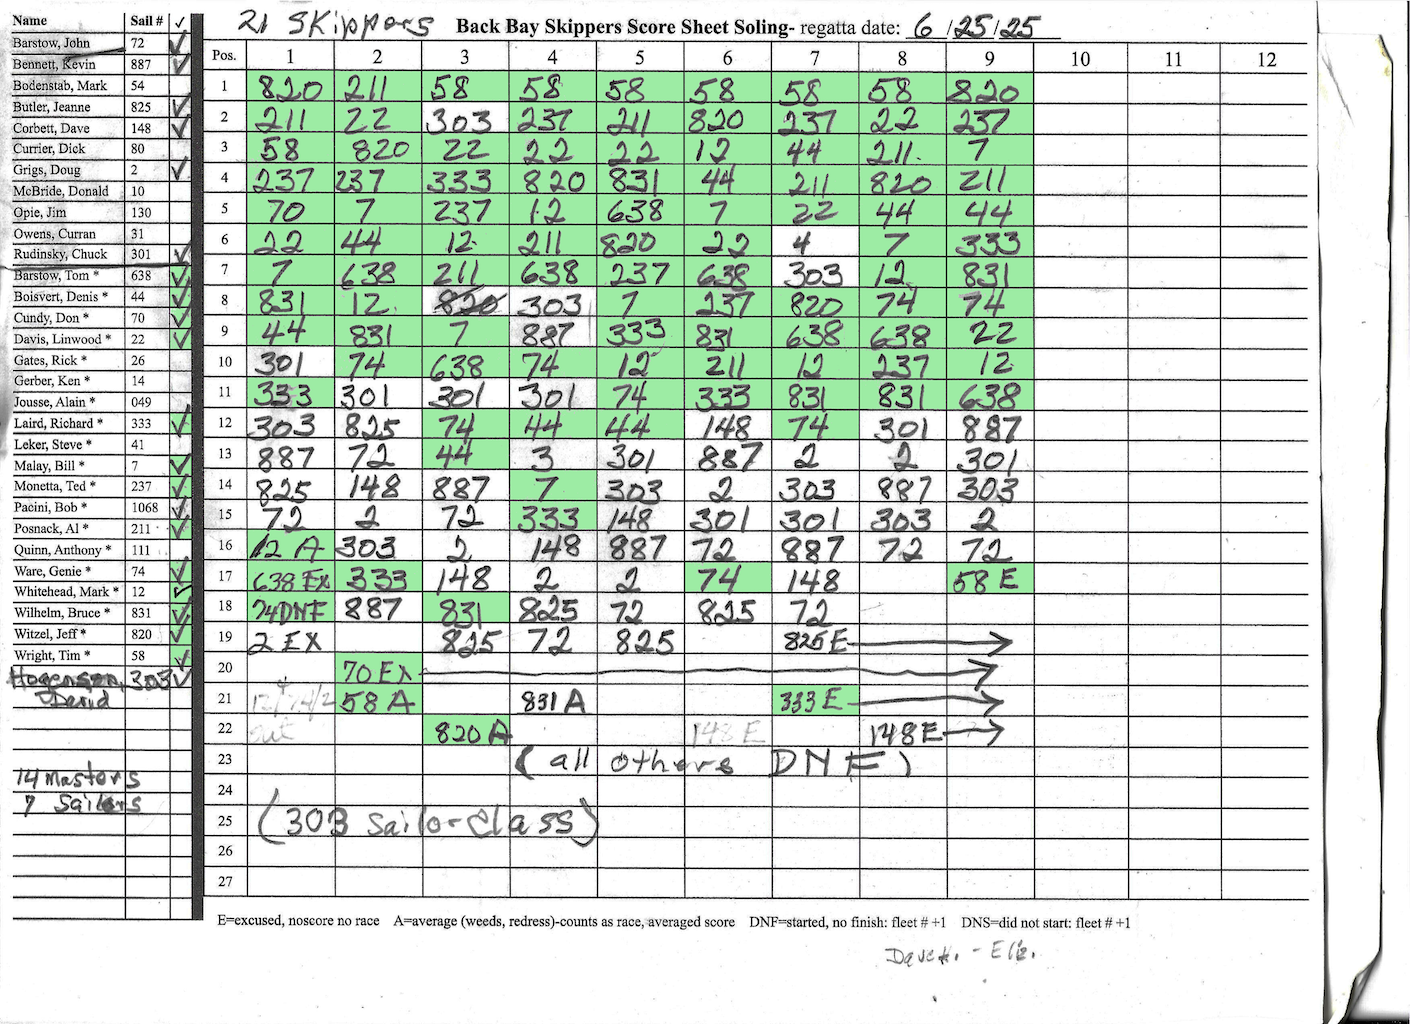 21 Skippers Back Bay Skippers Score Sheet Soling- regatta date: 6/25/25
Name Sail # ✓
Barstow, John 72 ✓
Bennett, Kevin 887 ✓
Bodenstab, Mark 54
Butler, Jeanne 825 ✓
Corbett, Dave 148 ✓
Currier, Dick 80
Grigs, Doug 2 ✓
McBride, Donald 10
Opie, Jim 130
Owens, Curran 31
Rudinsky, Chuck 301 ✓
Barstow, Tom * 638 ✓
Boisvert, Denis * 44 ✓
Cundy, Don * 70 ✓
Davis, Linwood * 22 ✓
Gates, Rick * 26
Gerber, Ken * 14
Jousse, Alain * 049
Laird, Richard * 333 ✓
Leker, Steve * 41
Malay, Bill * 7 ✓
Monetta, Ted * 237 ✓
Pacini, Bob * 1068 ✓
Posnack, Al * 211 ✓
Quinn, Anthony * 111
Ware, Genie * 74 ✓
Whitehead, Mark * 12 ✓
Wilhelm, Bruce * 831 ✓
Witzel, Jeff * 820 ✓
Wright, Tim * 58 ✓
303 ✓
David
14 Masters
7 Sailors
Pos. 1 2 3 4 5 6 7 8 9 10 11 12
1 820 211 58 58 58 58 58 58 820
2 211 22 303 237 211 820 237 22 237
3 58 820 22 22 22 12 44 211 7
4 237 237 333 820 831 44 211 820 211
5 70 7 237 12 638 7 22 44 44
6 22 44 12 211 820 22 4 7 333
7 7 638 211 638 237 638 303 12 831
8 831 12 820 303 7 237 820 74 74
9 44 831 7 887 333 831 638 638 22
10 301 74 638 74 12 211 12 237 12
11 333 301 301 301 74 333 831 831 638
12 303 825 74 44 44 148 74 301 887
13 887 72 44 3 301 887 2 2 301
14 825 148 887 7 303 2 303 887 303
15 72 2 72 333 148 301 301 303 2
16 12 A 303 2 148 887 72 887 72 72
17 638 Ex 333 148 2 2 74 148 58 E
18 74 DNF 887 831 825 72 825 72
19 2 EX 825 72 825 825 E
20 70 Ex
21 58 A 831 A 333 E
22 820 A 148 E 148 E
23 (all others DNF)
24
25 (303 Sailor Class)
26
27
E=excused, noscore no race A=average (weeds, redress)-counts as race, averaged score DNF=started, no finish: fleet # +1 DNS=did not start: fleet # +1
Dave H. - Eliz.